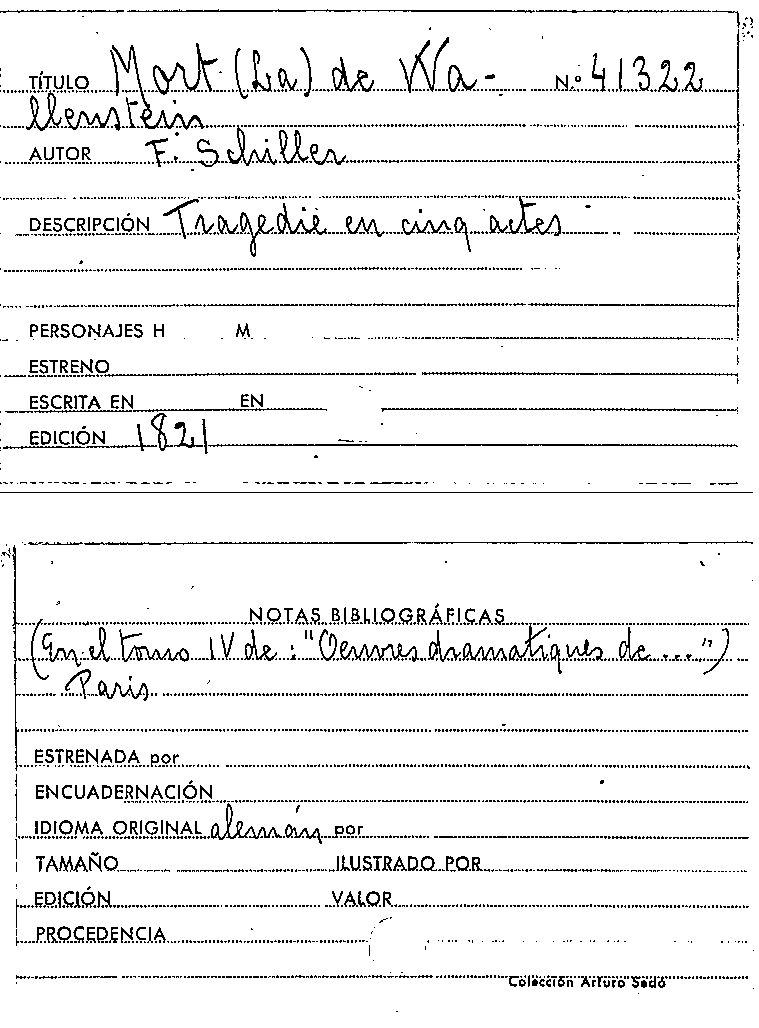 TÍTULO Mort (La) de Wa- N.º 41322
llenstein
AUTOR F. Schiller
DESCRIPCIÓN Tragedie en cinq actes
PERSONAJES H M
ESTRENO
ESCRITA EN EN
EDICIÓN 1821
NOTAS BIBLIOGRÁFICAS
(En el tomo IV de: "Oeuvres dramatiques de ...")
Paris
ESTRENADA por
ENCUADERNACIÓN
IDIOMA ORIGINAL alemán por
TAMAÑO ILUSTRADO POR
EDICIÓN VALOR
PROCEDENCIA
Colección Arturo Sedó